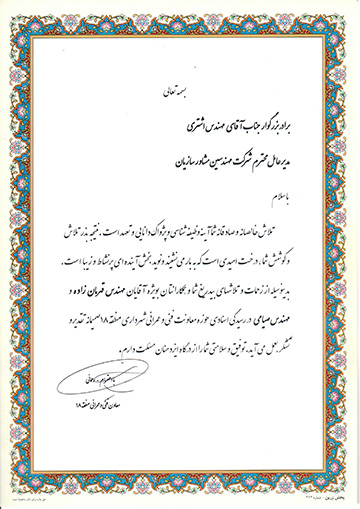 بسمه تعالی
برادر بزرگوار جناب آقای مهندس اشتری
مدیرعامل محترم شرکت مهندسین مشاور سازیان
با سلام
تلاش خالصانه و صادقانه شما آینه وظیفه شناسی و پژواک دانایی و تعهد است. نتیجه بذر تلاش
و کوشش شما، درخت امیدی است که به بار می نشیند و نوید بخش آینده ای پرنشاط و زیبا است.
بدینوسیله از زحمات و تلاشهای بیدریغ شما و همکارانتان بویژه آقایان مهندس قهرمان زاده و
مهندس صیامی در رسیدگی اسنادی حوزه معاونت فنی و عمرانی شهرداری منطقه ۱۸ صمیمانه تقدیر و
تشکر بعمل می آید، توفیق و سلامتی شما را از درگاه ایزد منان مسئلت دارم.
معاون فنی و عمرانی منطقه ۱۸